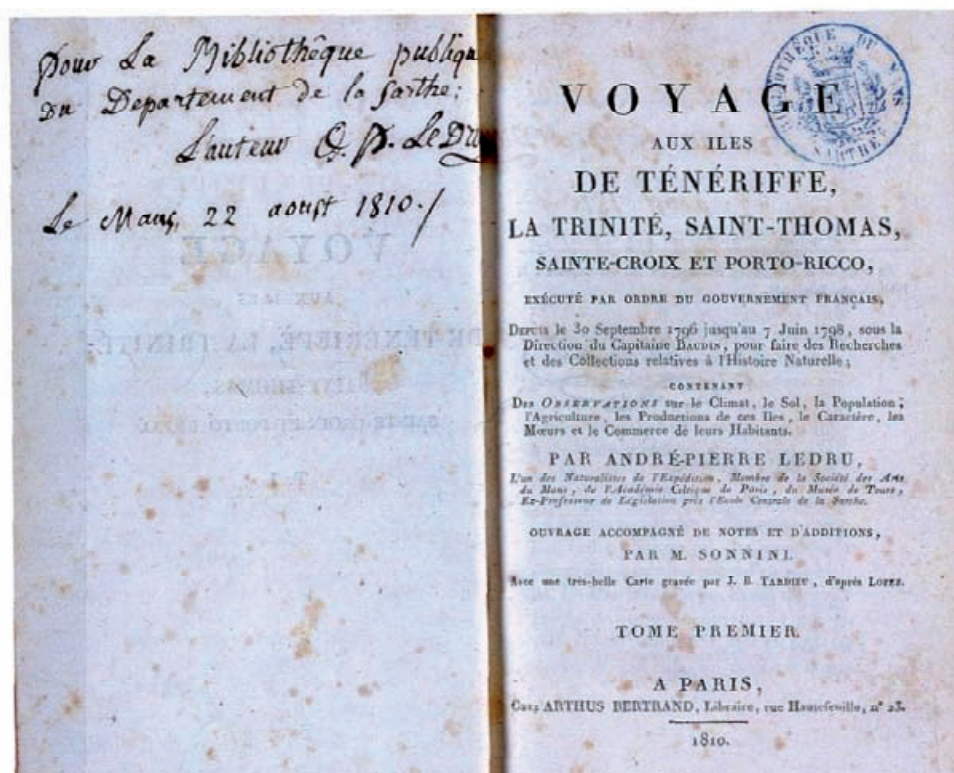 Pour La Bibliothêque publiqu
Du Departement de la Sarthe:
L'auteur A. P. LeDru
Le Mans, 22 aoust 1810./
BIBLIOTHÈQUE DU MANS
SARTHE
VOYAGE
AUX ILES
DE TÉNÉRIFFE,
LA TRINITÉ, SAINT-THOMAS,
SAINTE-CROIX ET PORTO-RICCO,
EXÉCUTÉ PAR ORDRE DU GOUVERNEMENT FRANÇAIS,
DEPUIS le 30 Septembre 1796 jusqu'au 7 Juin 1798, sous la
Direction du Capitaine BAUDIN, pour faire des Recherches
et des Collections relatives à l'Histoire Naturelle;
CONTENANT
DES OBSERVATIONS sur le Climat, le Sol, la Population,
l'Agriculture, les Productions de ces Iles, le Caractère, les
Mœurs et le Commerce de leurs Habitants.
PAR ANDRÉ-PIERRE LEDRU,
L'un des Naturalistes de l'Expédition, Membre de la Société des Arts
du Mans, de l'Académie Celtique de Paris, du Musée de Tours,
Ex-Professeur de Législation près l'Ecole Centrale de la Sarthe.
OUVRAGE ACCOMPAGNÉ DE NOTES ET D'ADDITIONS,
PAR M. SONNINI.
Avec une très-belle Carte gravée par J. B. TARDIEU, d'après LOPEZ.
TOME PREMIER.
A PARIS,
Chez ARTHUS BERTRAND, Libraire, rue Hautefeuille, n° 23.
1810.